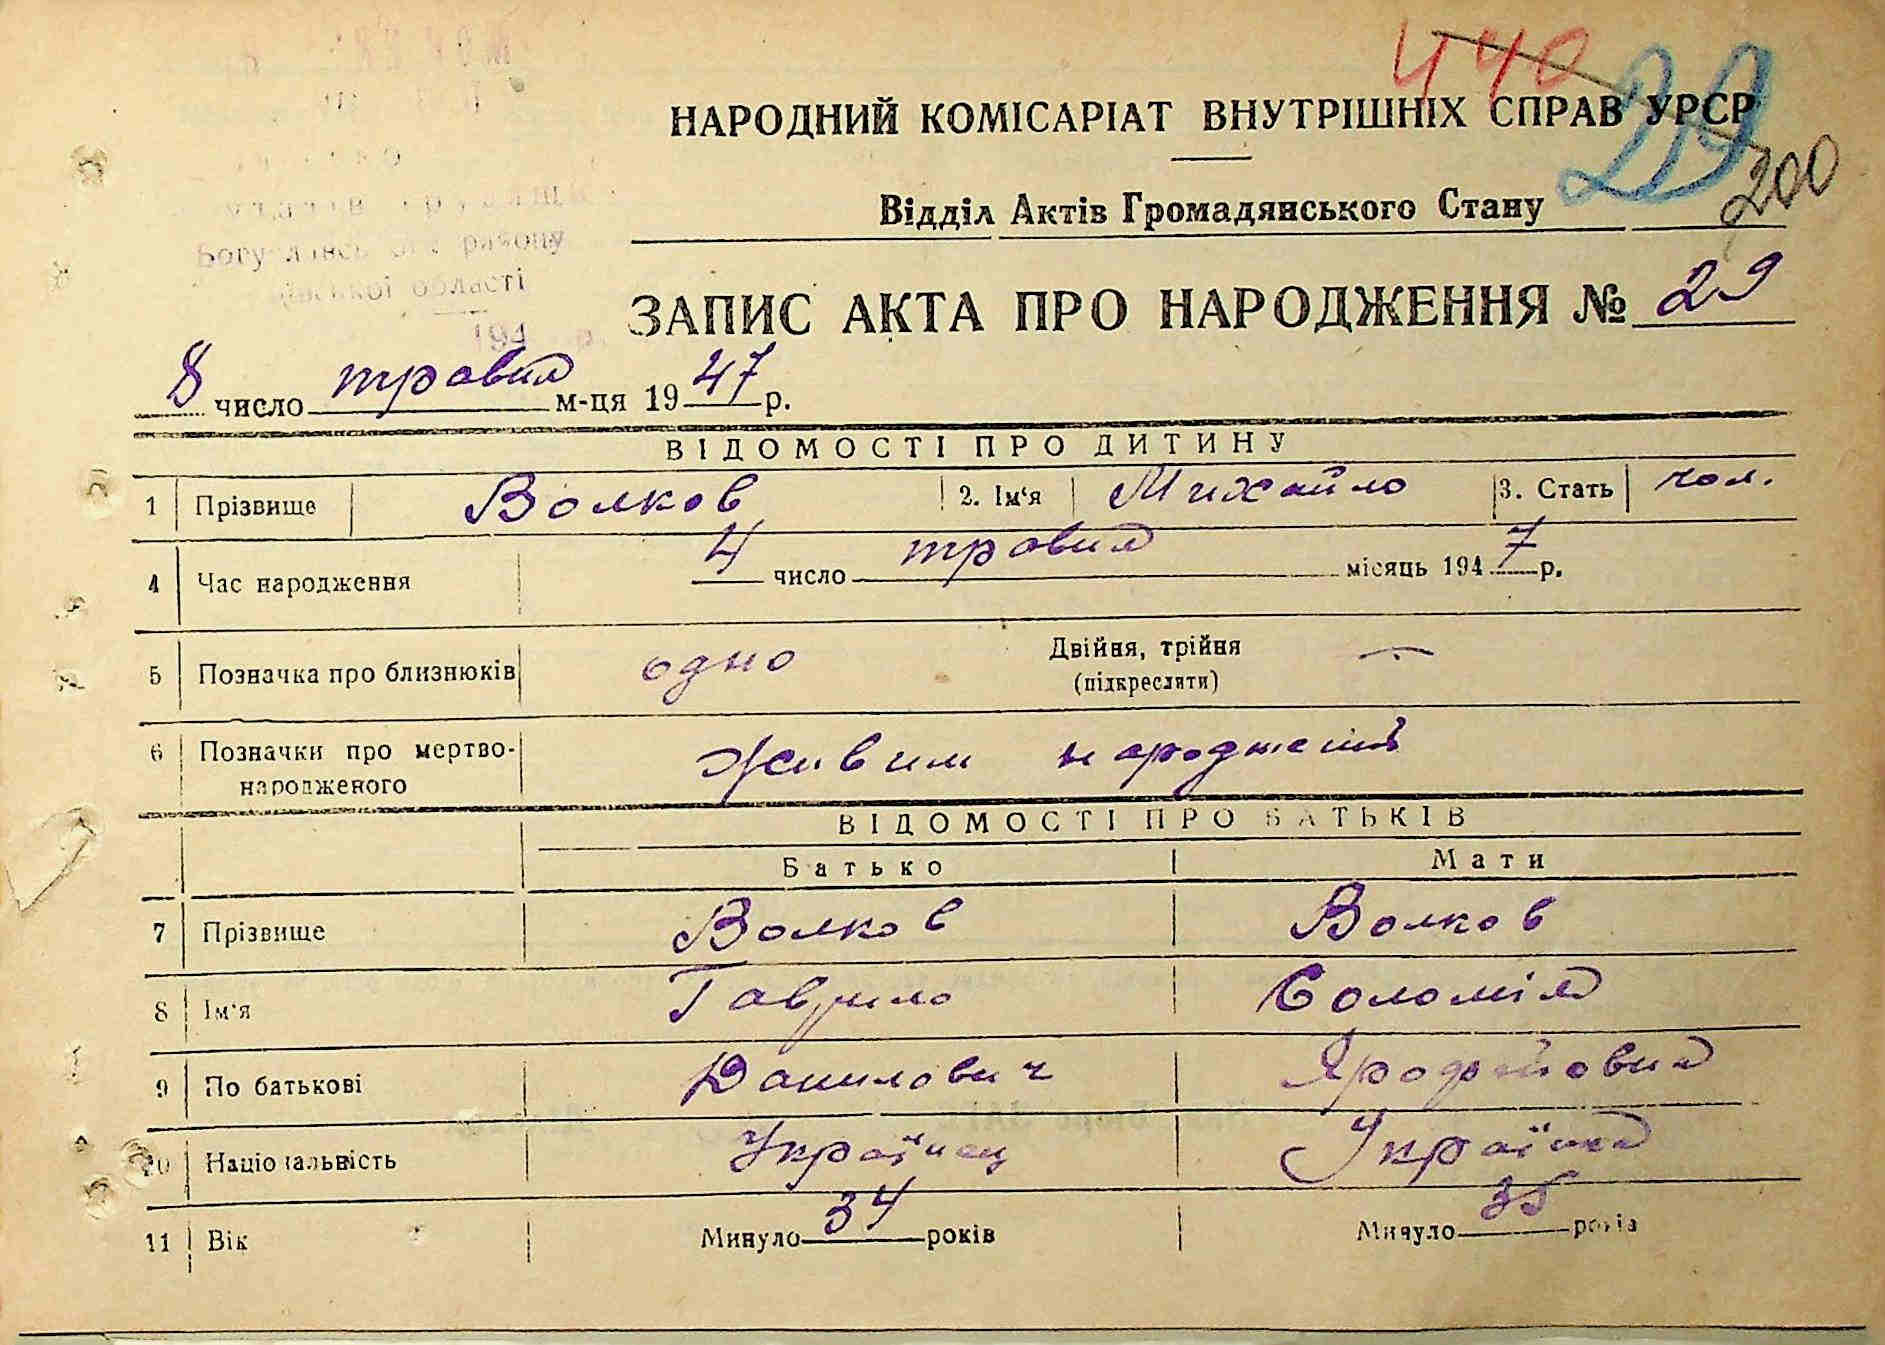 440 29
НАРОДНИЙ КОМІСАРІАТ ВНУТРІШНІХ СПРАВ УРСР
200
Відділ Актів Громадянського Стану
району
області
194 р.
ЗАПИС АКТА ПРО НАРОДЖЕННЯ № 29
8 число травня м-ця 1947 р.
ВІДОМОСТІ ПРО ДИТИНУ
1 Прізвище Волков 2. Ім'я Михайло 3. Стать чол.
4 Час народження 4 число травня місяць 1947 р.
5 Позначка про близнюків одно Двійня, трійня —
(підкреслити)
6 Позначки про мертво- живим народженій
народженого
ВІДОМОСТІ ПРО БАТЬКІВ
Батько Мати
7 Прізвище Волков Волков
8 Ім'я Гаврило Соломія
9 По батькові Данилович
10 Національність Українец Українка
11 Вік Минуло 34 років Минуло 35 років